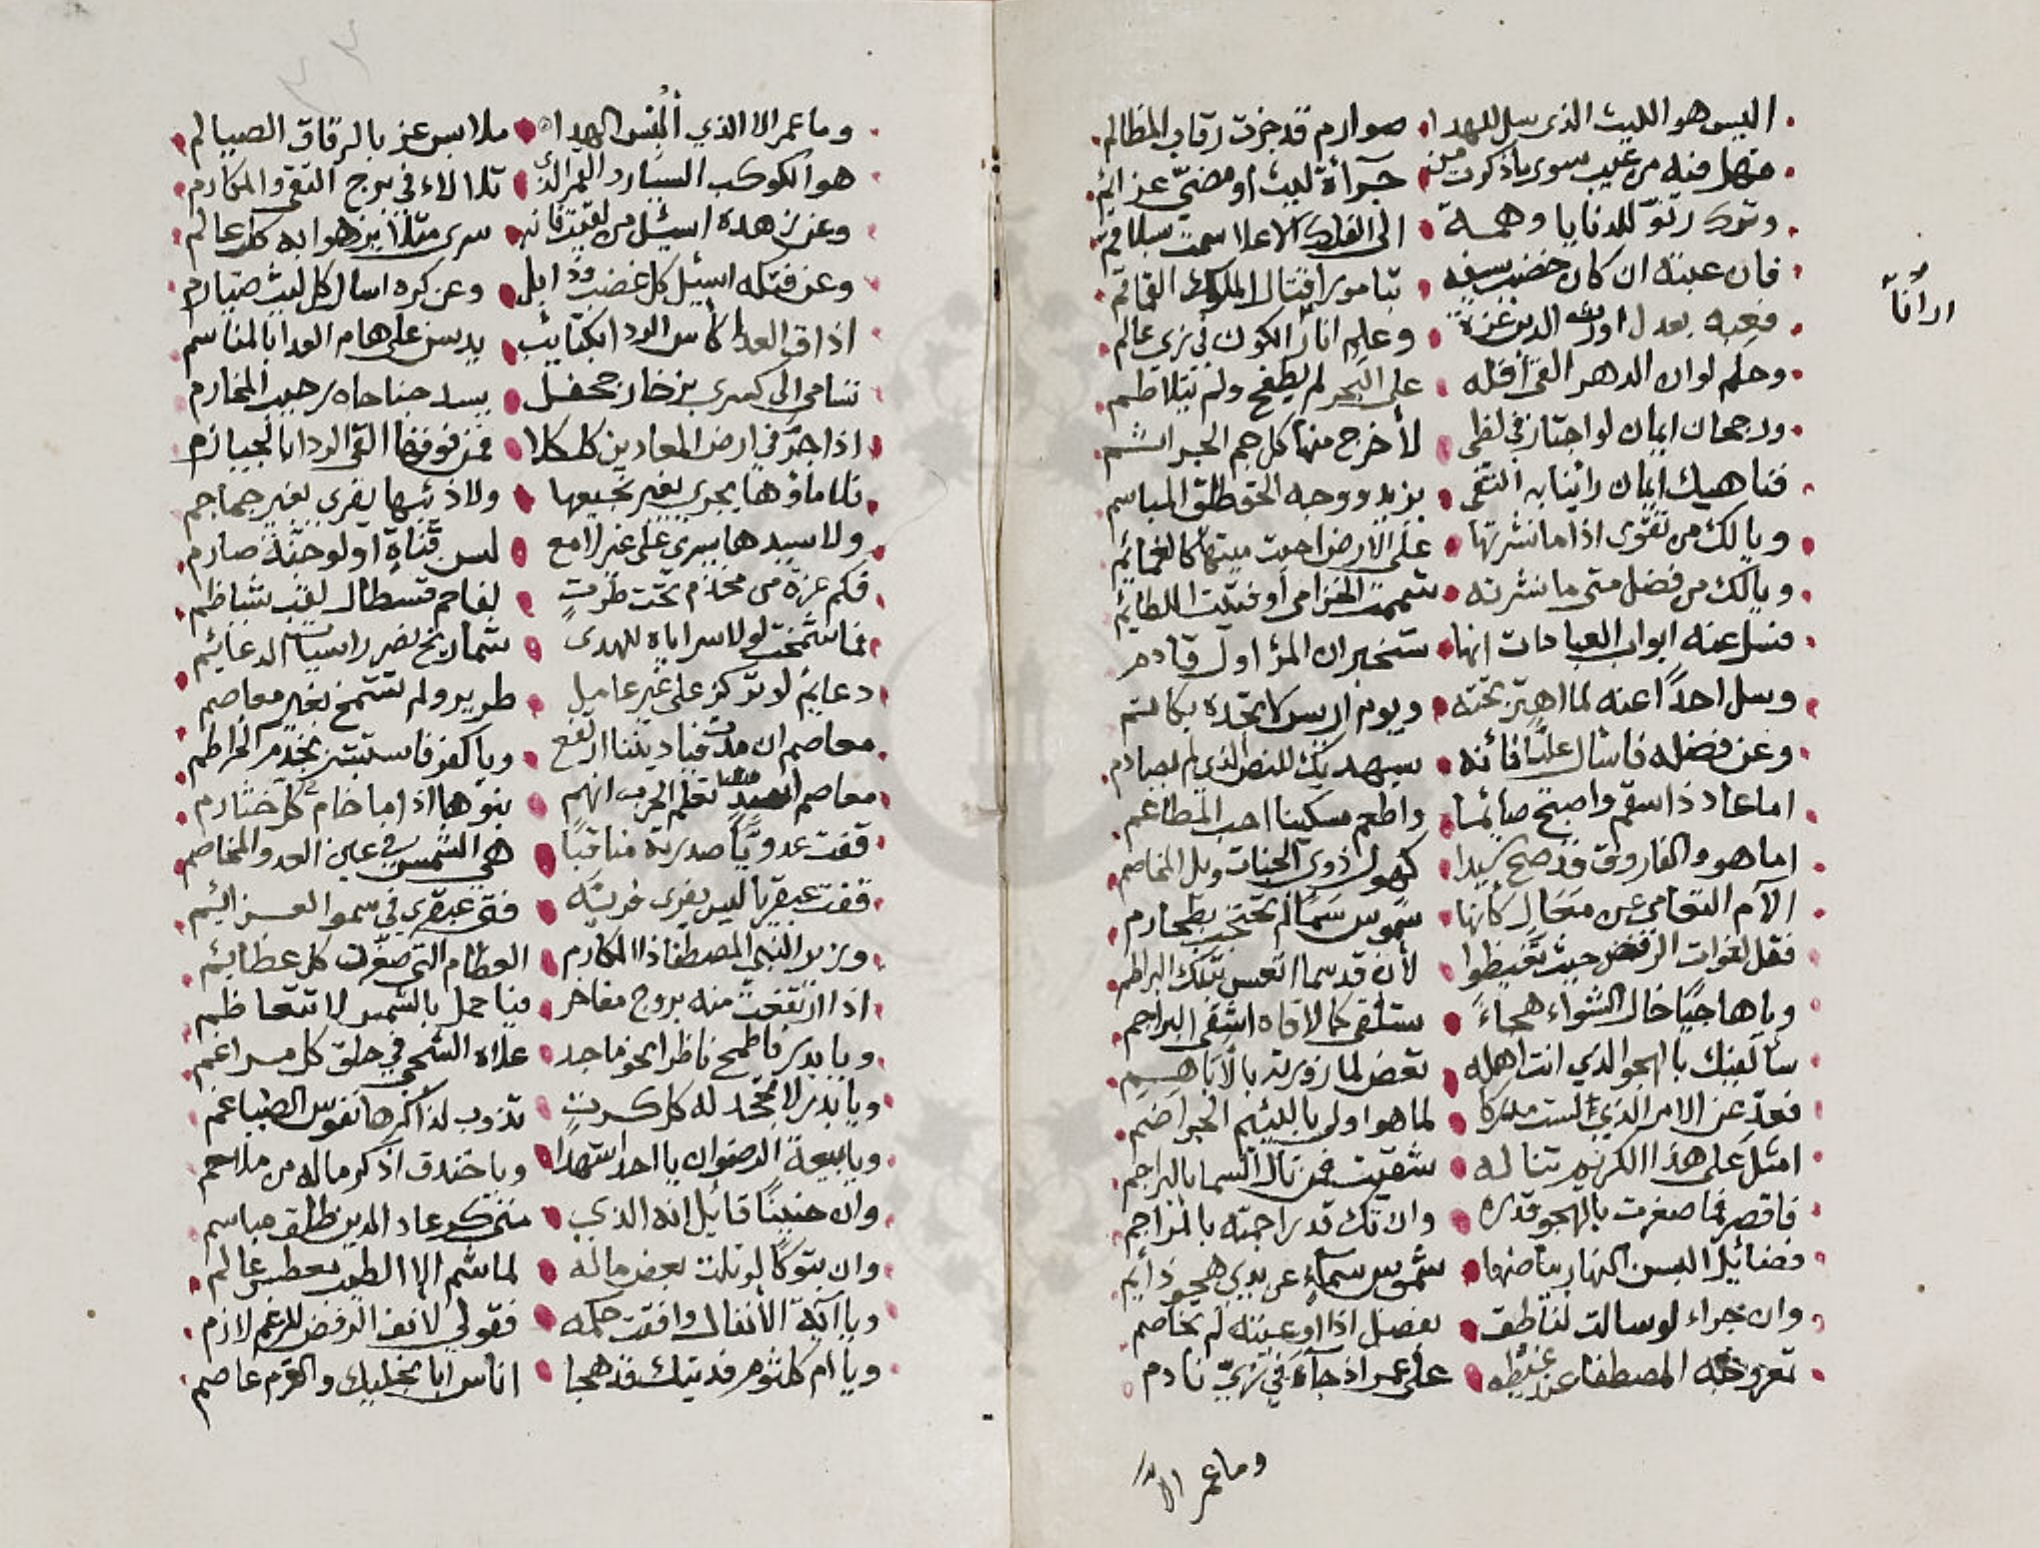 اليس هو الليث الذي سل للهدا صوارم قد جزت رقاب المظالم
فهل فيه من عيب سوى ما ذكرت من جرآءة ليث او مضيّ عزايم
وترك رنوّ للدنايا وهمة الى الفلك الاعلا سمت
فان عبته ان كان خضب سيفه الملوك القماقم
فعبه بعدل اورث الدين عزة وعلم انار الكون في زي عالم
وحلم لو ان الدهر القى أقله على البحر لم يطفح ولم يتلاطم
ورجحان ايمان لو اجتاز في لظى لأخرج منها كل جم الجرائم
فناهيك ايمان رأينا به التقى يزيد ووجه الحق طلق المباسم
ويا لك من تقوى اذا ما نشرتها على الارض احيت ميتها كالغمايم
ويا لك من فضل متى ما نشرته شممت الخزامى او فتيت اللطايم
فسل عنه ابواب العبادات انها ستخبر ان المرؤ اول قادم
وسل احدًا عنه لما اهتز تحته ويوم اريس لا تجده بكاتم
وعن فضله فاسأل عليًّا فانه سيهديك للنص الذي لم يصادم
اما عاد ذا سقم واصبح صايما واطعم مسكينا احب المطاعم
اما هو والفاروق قد صح سيدا كهول ذوي الجنات ويل المخاصم
الآم التعامي عن معال كأنها شموس سمآ لم تحتجب بطخارم
فقل لغوات الرفض حيث تغيظوا لأن قد سما اتعس بتلك البراطم
ويا هاجيًا خال الشواء هجاءً ستلقى كما لاقاه اشقى البراجم
سألفيك بالهجو الذي انت اهله تعض لما زورته بالأباهيم
فعدّ عن الامر الذي لست مدركا لما هو اولى باللئيم الجراضم
امثلك على هذا الكريم تناله شقيت فمن نال السما بالبراجم
فاقصر فما صغرت بالهجو قدره وان تك قد راجمته بالمراجم
فضايل البسن النهار بياضها شموس سماء عن يدي هجو ذايم
وان حراء لو سالت لناطق بفضل اذا اوعيته لم تخاصم
تعزو خه المصطفا عند غيظه على عمر اذ جآء في زيّ نادم
وما عمر الا
ار اُنّا
وما عمر الا الذي أُلبس الهدا ملابس عز بالرقاق الصيالم
هو الكوكب السيار والقمر الذي تلالاء في برج التقى والمكارم
وعن زهده اسئل من لقيت فانه سرى مثلا يزهوا به كل عالم
وعن فتكه اسئل كل غضب وذابل وعن كره اسال كل ليث ضبارم
اذاق العدا كأس الردا بكتائب يدسن على هام العدا بالمناسم
تسامى الى كسرى بزخار جحفل يسد جناحاه رحيب المخارم
اذا جر في ارض المعادين كلكلا فمن فوقها القى الردا بالجيازم
فلا ماؤها يجري بغير نجيعها ولا ذئبها يقرى بغير جماجم
ولا سيدها يسري على غير لامع لسن قناةٍ او لوحنّة صارم
فكم عزة من مخذم تحت طرت لفاحم قسطال لغب شباظم
فما شمخت لولا سراياه للهدى شماريخ نضر راسيات الدعايم
دعايم لا تركز على غير عامل طرير ولم تشمخ بغير معاصم
معاصم ان مدت فيا ديننا ارتفع ويا كفر فاستبشر بخذم الخراطم
معاصم تعلم الحرب انهم بنوها اذا ما خام كل خشارم
قفت عدويًّا صدرية مناقبًا هي الشمس في عين العدو والمخاصم
قفت عبقريا ليس يفرى فريّه فتى عبقري في سمو العزايم
وزير النبي المصطفا ذا المكارم العظام التي صغّرت كل عظايم
اذا ارتفعت منه بروج مفاخر فيا حمل بالشمس لا تتعاظم
ويا بدر فاطمح ناظرا نحو ماجد علاه الشجى في حلق كل مراغم
ويا بدر لا تجحد له كل كرت تذوب لذاكرها نفوس الضياغم
ويا بيعة الرضوان يا احد اشهدا ويا خندق اذكر ماله من ملاحم
وان حنينًا قائل انه الذي متى كر عاد الدين طلق مباسم
وان تبوكًا لو تلت بعض ماله لما شم الا الطيب معطس عالم
ويا آية الأنفال وافقت حكمه فقولي لانف الرفض للرغم لازم
ويا ام كلثوم فديتك قد هجا اناس ابا نجليك والقرم عاصم